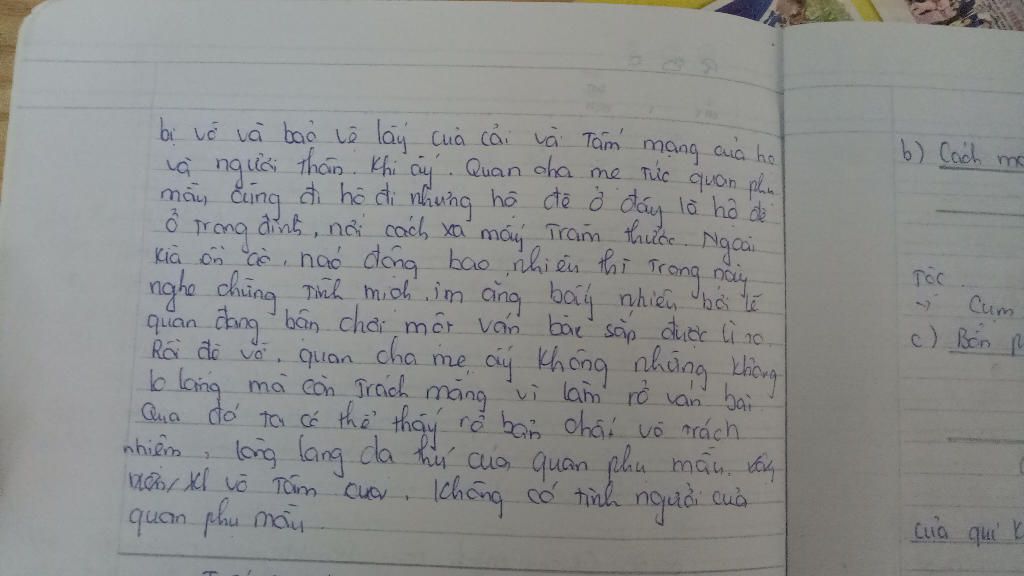 bị vỡ và bảo vệ lấy của cải và tấm mạng của họ
và người thân. Khi ấy. Quan cha mẹ tức quan phụ
mẫu cũng đi hộ đi nhưng hộ đê ở đây là hộ đê
ở trong đình, nơi cách xa mấy trăm thước. Ngoài
kia ồn ào, náo động bao nhiêu thì trong này
nghe chừng tĩnh mịch, im ắng bấy nhiêu bởi lẽ
quan đang bận chơi một ván bài sắp được ù to.
Rồi đê vỡ, quan cha mẹ ấy không những không
lo lắng mà còn trách mắng vì làm rở ván bài.
Qua đó ta có thể thấy rõ bản chất vô trách
nhiệm, lòng lang dạ thú của quan phụ mẫu.
vô tâm của, không có tình người của
quan phụ mẫu.
b) Cách
tộc
→ Cụm
c) Bổn
của quí